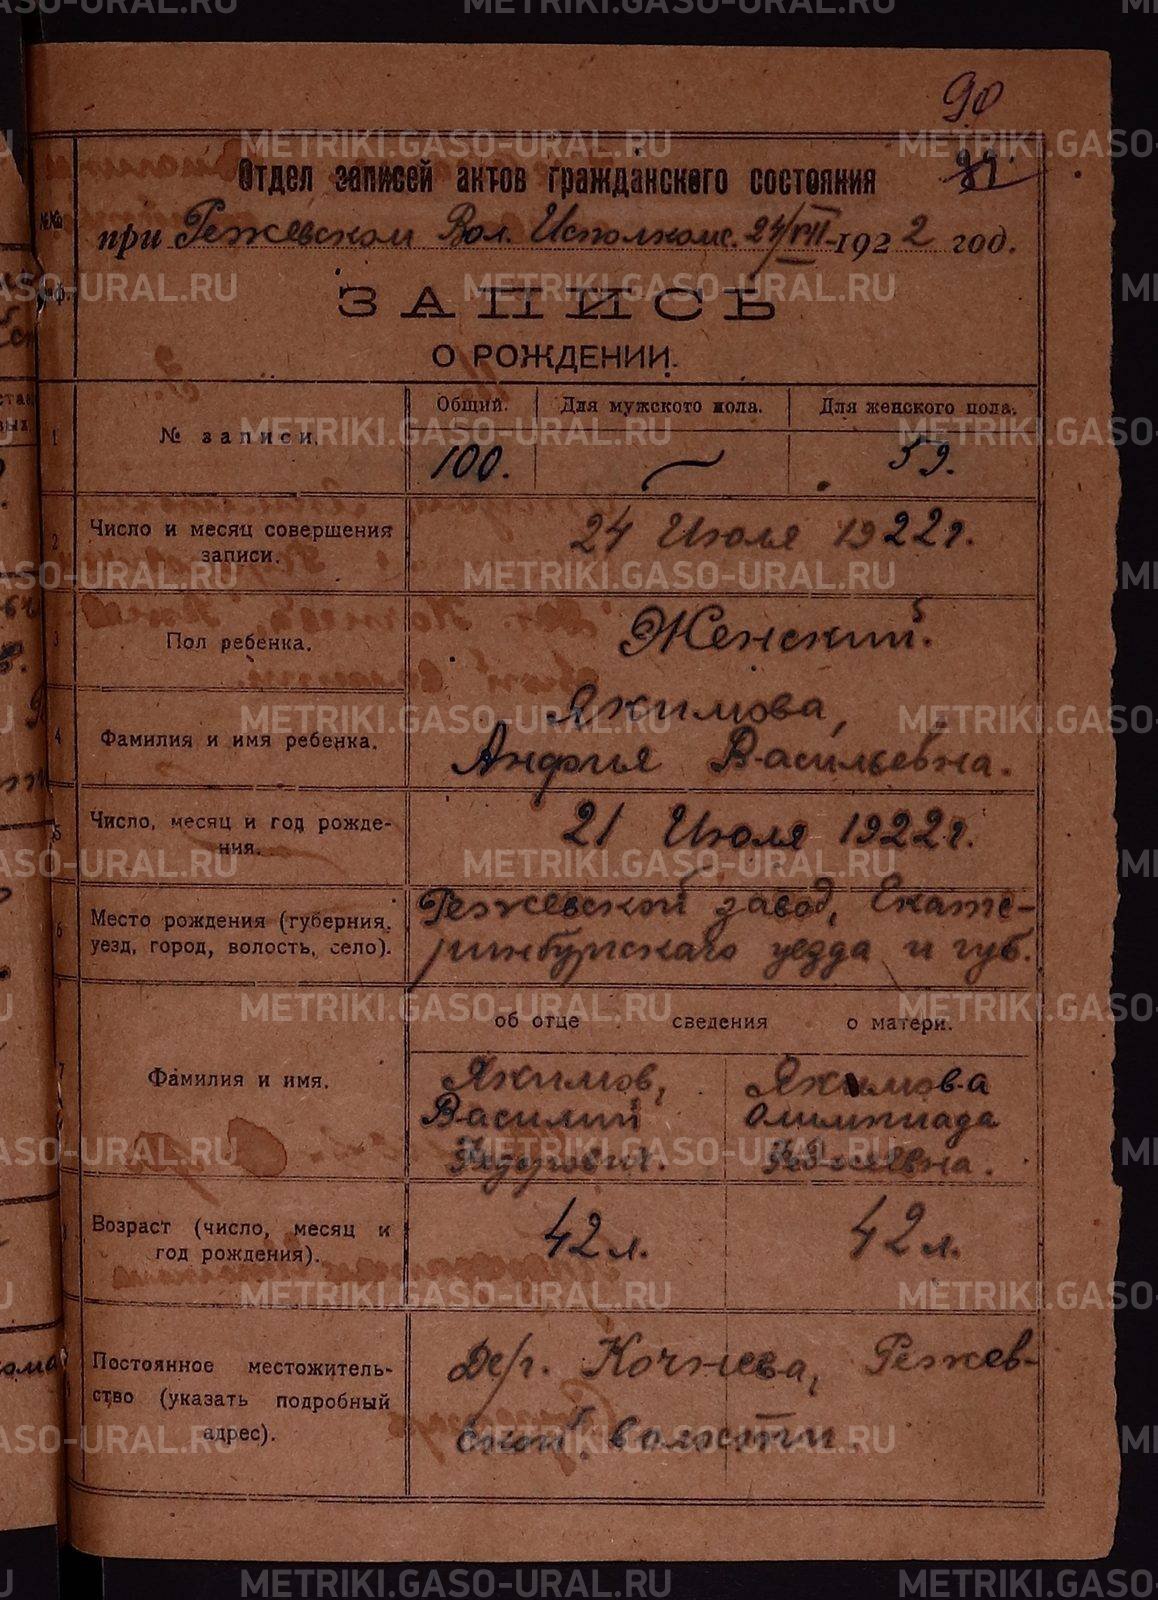 90
Отдел записей актов гражданского состояния
при Режевском Вол. Исполкоме. 24/VII-1922 год.
ЗАПИСЬ
О РОЖДЕНИИ.
1 № записи. Общий. Для мужского пола. Для женского пола.
100. — 59.
2 Число и месяц совершения записи. 24 Июля 1922 г.
3 Пол ребенка. Женский.
4 Фамилия и имя ребенка. Якимова,
Анфия Васильевна.
5 Число, месяц и год рожде-
ния. 21 Июля 1922 г.
6 Место рождения (губерния, Режевской завод, Екате-
уезд, город, волость, село). ринбургского уезда и губ.
об отце сведения о матери.
7 Фамилия и имя. Якимов, Якимов-а
Василий Олимпиада
Федорович.
Возраст (число, месяц и
год рождения). 42 л. 42 л.
Постоянное местожитель- Дер. Кочнева, Режев-
ство (указать подробный
адрес). ской волости.
METRIKI.GASO-URAL.RU